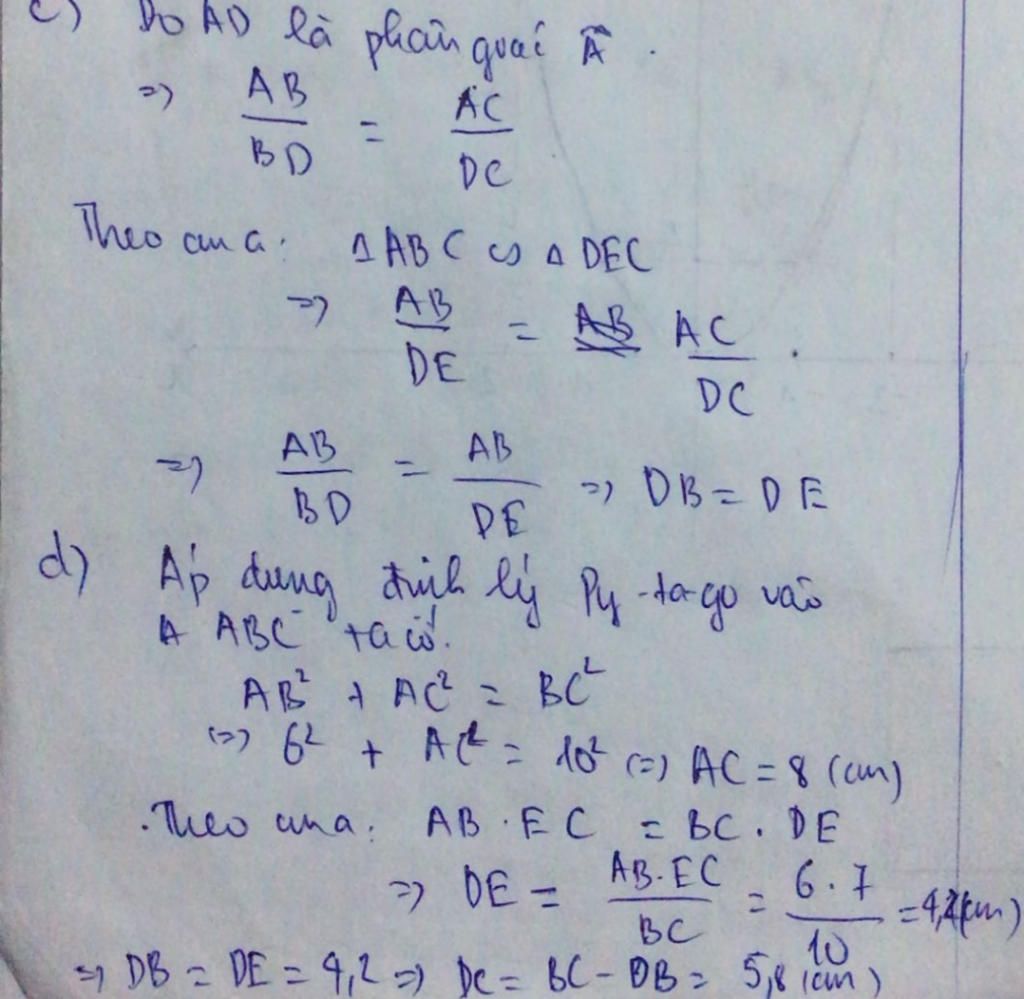 c) Do AD là phân giác Â.
=> AB/BD = AC/DC
Theo câu a: Δ ABC ∽ Δ DEC
=> AB/DE = AC/DC.
=> AB/BD = AB/DE => DB = DE
d) Áp dụng định lý Py-ta-go vào
Δ ABC ta có:
AB² + AC² = BC²
(=> 6² + AC² = 10² (=) AC = 8 (cm)
. Theo câu a: AB . EC = BC . DE
=> DE = AB.EC/BC = 6.7/10 = 4,2(cm)
=> DB = DE = 4,2 => DC = BC - DB = 5,8 (cm)